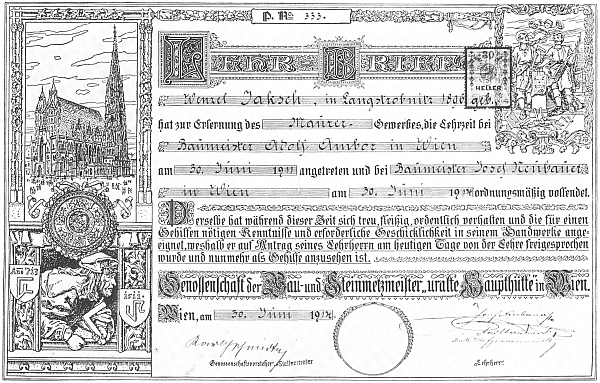 P. No 333.
LEHR BRIEF
30
HELLER
Wenzel Jaksch, in Langstrobnitz 1896 geb.,
hat zur Erlernung des Maurer- Gewerbes, die Lehrzeit bei
Baumeister Adolf Ambor in Wien
am 30. Juni 19 angetreten und bei Baumeister Josef Neubauer
in Wien am 30. Juni 19 ordnungsmäßig vollendet.
Derselbe hat während dieser Zeit sich treu, fleißig, ordentlich verhalten und die für einen
Gehilfen nötigen Kenntnisse und erforderliche Geschicklichkeit in seinem Handwerke ange-
eignet, weshalb er auf Antrag seines Lehrherrn am heutigen Tage von der Lehre freigesprochen
wurde und nunmehr als Gehilfe anzusehen ist.
Genossenschaft der Bau- und Steinmetzmeister „uralte Haupthütte" in Wien.
Wien, am 30. Juni 19
Genossenschaftsvorsteher Stellvertreter
Lehrherr.